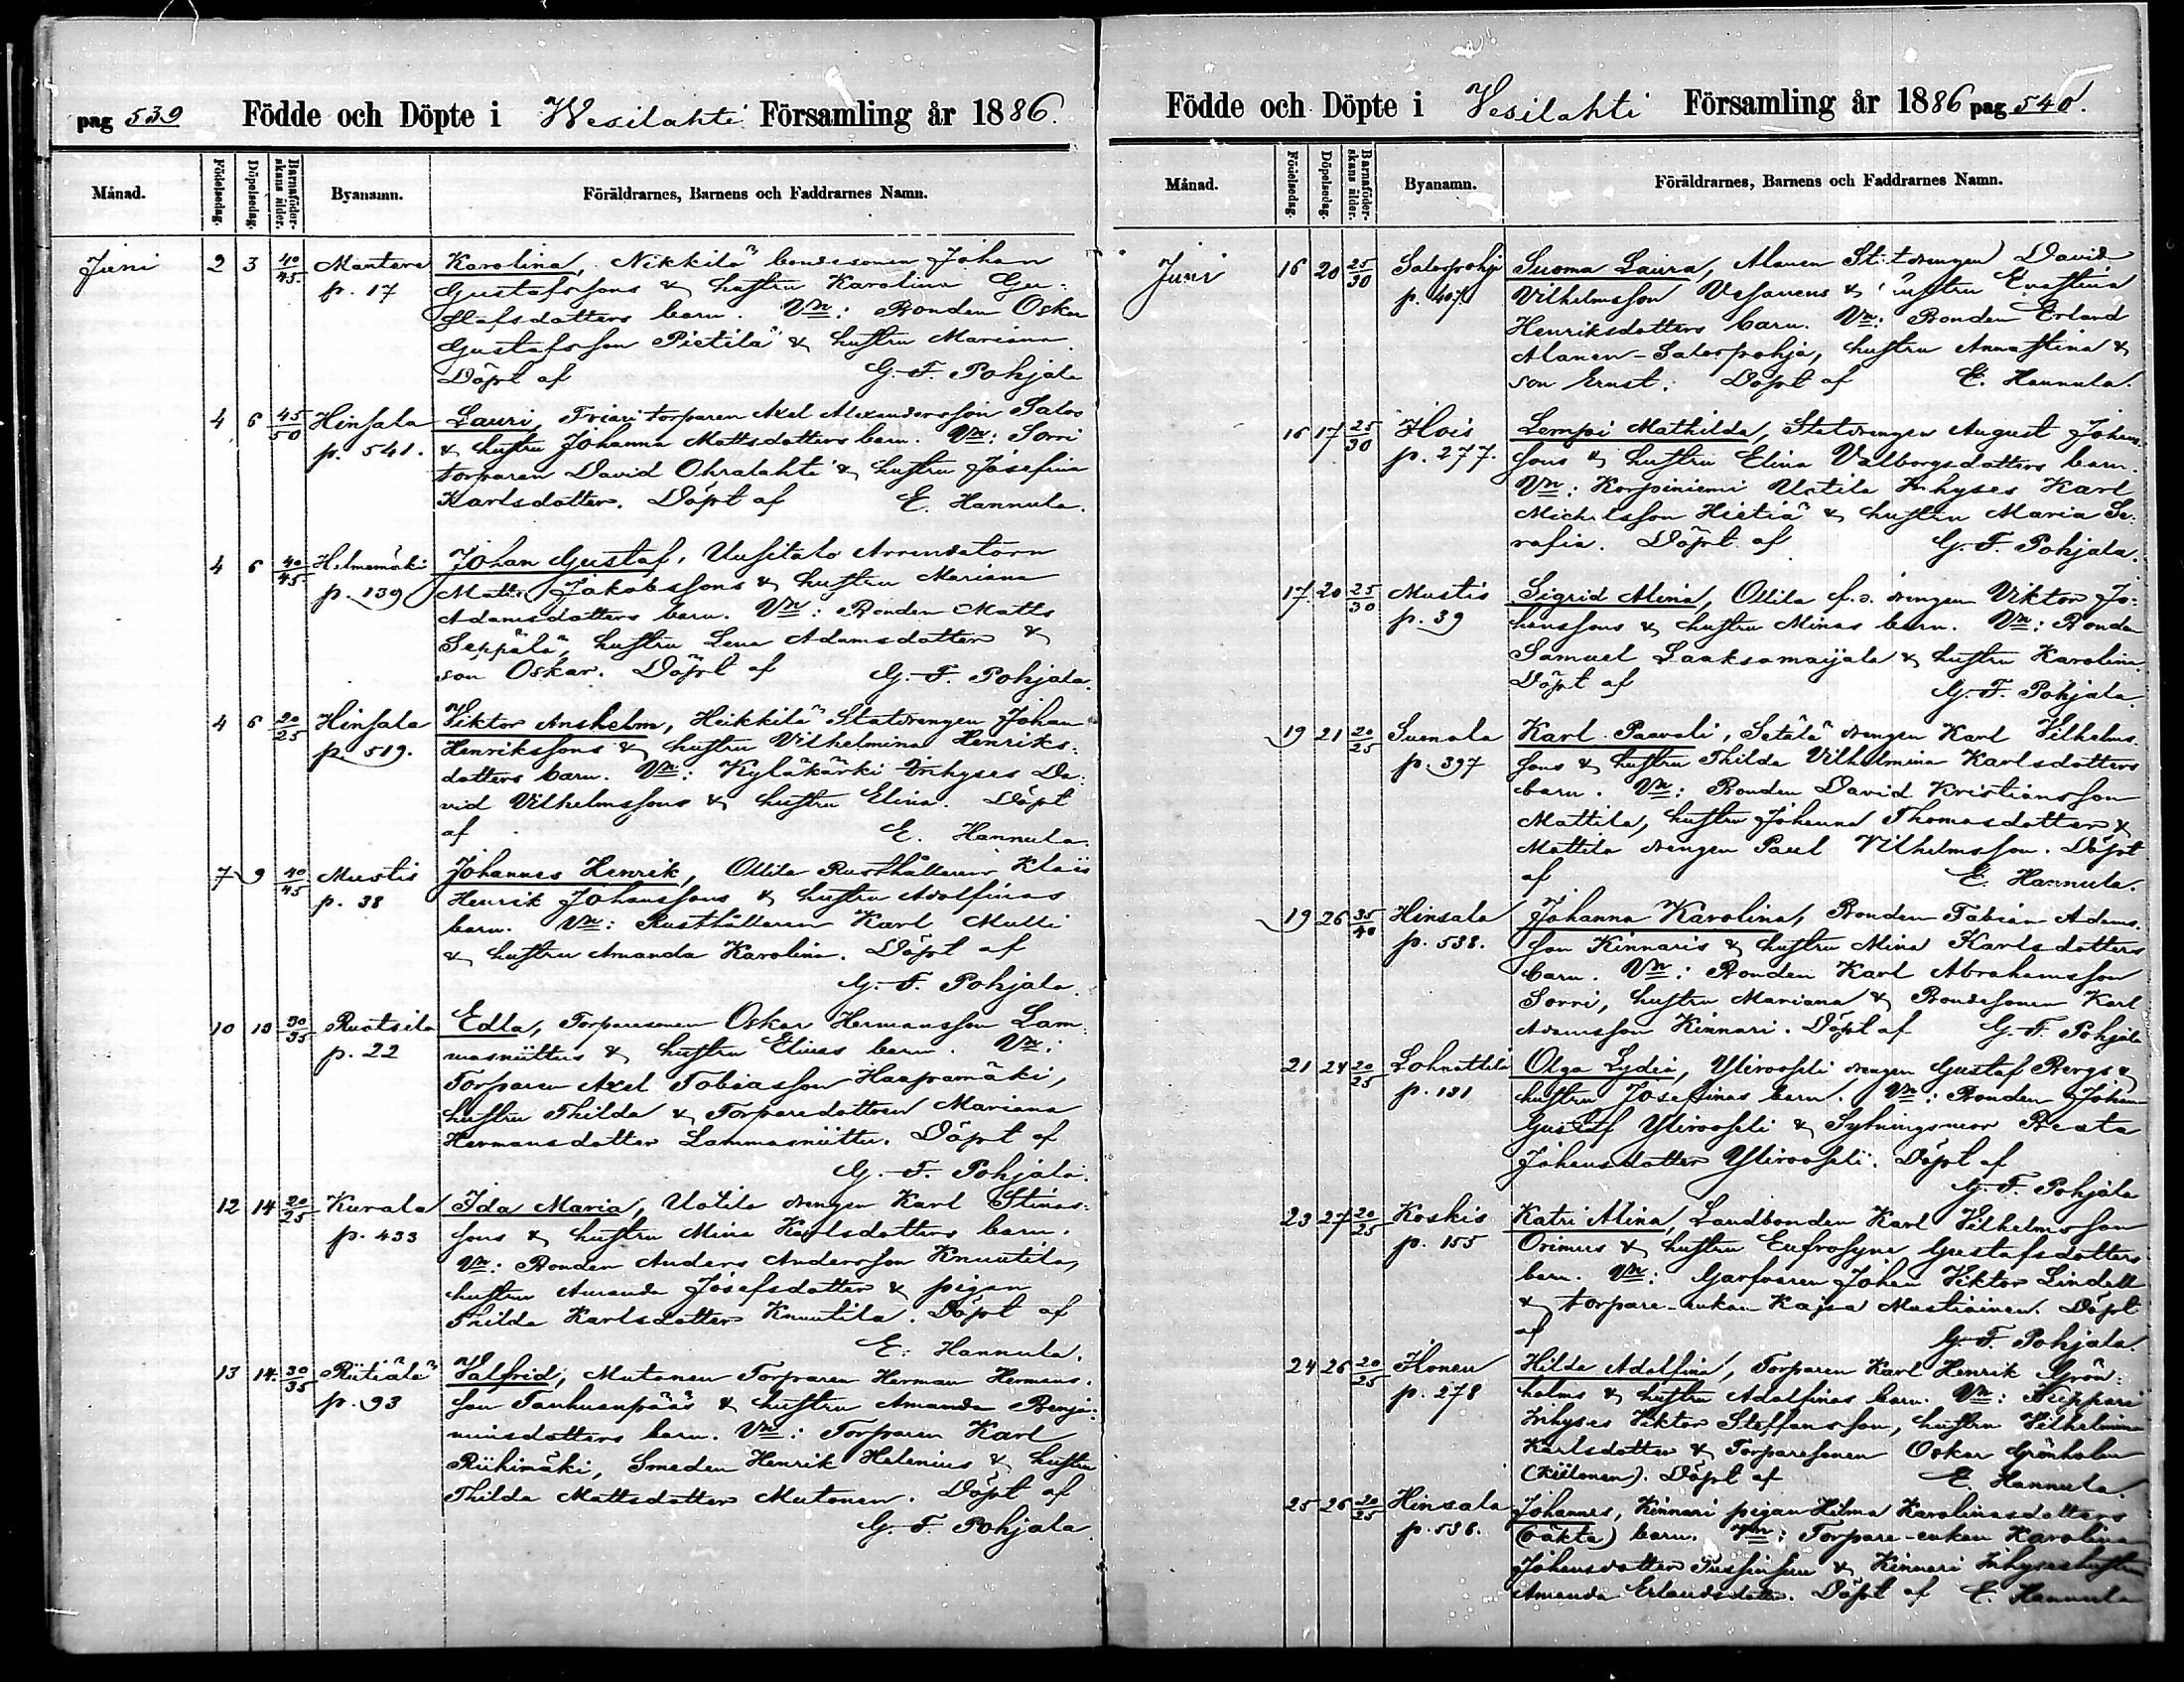 pag 539 Födde och Döpte i Wesilahti Församling år 1886.
Månad. Födelsedag. Döpelsedag. Barnaföderskans ålder. Byanamn. Föräldrarnes, Barnens och Faddrarnes Namn.
Juni 2 3 40/45 Mantere Karolina, Nikkilä bondesonen Johan
p. 17 Gustafssons & hustru Karolina Gu-
stafsdotters barn. Vn: Bonden Oskar
Gustafsson Pietilä & hustru Mariana.
Döpt af G. F. Pohjala
4 6 45/50 Hinsala Lauri, Friari torparen Axel Alexandersson Salos
p. 541. & hustru Johanna Mattsdotters barn. Vn: Sorri
torparen David Ohralahti & hustru Josefina
Karlsdotter. Döpt af E. Hannula.
4 6 40/45 Helmemäki Johan Gustaf, Uusitalo Arrendatorn
p. 139 Matts Jakobssons & hustru Mariana
Adamsdotters barn. Vn: Bonden Matts
Seppälä, hustru Lena Adamsdotter &
son Oskar. Döpt af G. F. Pohjala.
4 6 20/25 Hinsala Viktor Anshelm, Heikkilä Statdrengen Johan
p. 519. Henrikssons & hustru Vilhelmina Henriks-
dotters barn. Vn: Kyläkärki Inhyses Da-
vid Vilhelmssons & hustru Elina. Döpt
af E. Hannula.
7 9 40/45 Mustis Johannes Henrik, Ollila Rusthållaren Klas
p. 38 Henrik Johanssons & hustru Adolfinas
barn. Vn: Rusthållaren Karl Mulli
& hustru Amanda Karolina. Döpt af
G. F. Pohjala.
10 13 30/35 Ruotsila Edla, Torparesonen Oskar Hermansson Lam-
p. 22 masniittus & hustru Elinas barn. Vn:
Torparen Axel Tobiasson Haapamäki,
hustru Thilda & Torparedottren Mariana
Hermansdotter Lammasniittu. Döpt af
G. F. Pohjala.
12 14 20/25 Kurala Ida Maria, Uotila drengen Karl Stinas-
p. 433 sons & hustru Mina Karlsdotters barn.
Vn: Bonden Anders Andersson Knuutila,
hustru Amanda Josefsdotter & pigan
Thilda Karlsdotter Knuutila. Döpt af
E. Hannula.
13 14 30/35 Riitiälä Valfrid, Mutonen Torparen Herman Hermans-
p. 93 son Tanhuanpääs & hustru Amanda Benja-
minsdotters barn. Vn: Torparen Karl
Riihimäki, Smeden Henrik Helenius & hustru
Thilda Mattsdotter Mutonen. Döpt af
G. F. Pohjala.
Födde och Döpte i Vesilahti Församling år 1886 pag 540.
Månad. Födelsedag. Döpelsedag. Barnaföderskans ålder. Byanamn. Föräldrarnes, Barnens och Faddrarnes Namn.
Juni 16 20 25/30 Salospohja Suoma Laura, Alanen Statdrengen David
p. 407. Vilhelmsson Vesanens & hustru Evastina
Henriksdotters barn. Vn: Bonden Erland
Alanen-Salospohja, hustru Annastina &
son Ernst. Döpt af E. Hannula.
16 17 25/30 Hois Lempi Mathilda, Statdrengen August Johans-
p. 277. sons & hustru Elina Valborgsdotters barn.
Vn: Korpiniemi Uotila Inhyses Karl
Michelsson Hietiä & hustru Maria Se-
rafia. Döpt af G. F. Pohjala.
17. 20 25/30 Mustis Sigrid Alina, Ollila f.d. drengen Viktor Jo-
p. 39 hanssons & hustru Minas barn. Vn: Bonden
Samuel Laaksomaijala & hustru Karolina.
Döpt af G. F. Pohjala.
19 21 20/25 Suomela Karl Paavali, Setälä drengen Karl Vilhelms-
p. 397 sons & hustru Thilda Vilhelmina Karlsdotters
barn. Vn: Bonden David Kristiansson
Mattila, hustru Johanna Thomasdotter &
Mattila drengen Paul Vilhelmsson. Döpt
af E. Hannula.
19 26 35/40 Hinsala Johanna Karolina, Bonden Fabian Adams-
p. 538. son Kinnaris & hustru Mina Karlsdotters
barn. Vn: Bonden Karl Abrahamsson
Sorri, hustru Mariana & Bondesonen Karl
Adamsson Kinnari. Döpt af G. F. Pohjala
21 24 20/25 Lohnottila Olga Lydia, Ylirooseli drengen Gustaf Bergs &
p. 131 hustru Josefinas barn. Vn: Bonden Johan
Gustaf Ylirooseli & Sytningsmor Beata
Johansdotter Ylirooseli. Döpt af
G. F. Pohjala
23 27 20/25 Koskis Katri Alina, Landbonden Karl Vilhelmsson
p. 155 Orimus & hustru Eufrosyne Gustafsdotters
barn. Vn: Garfvaren Johan Viktor Lindell
& torpare-enkan Kajsa Mustiainen. Döpt
af G. F. Pohjala.
24 26 20/25 Honen Hilda Adolfina, Torparen Karl Henrik Grön-
p. 278 holms & hustru Adolfinas barn. Vn: Seppari
Inhyses Viktor Steffansson, hustru Vilhelmina
Karlsdotter & Torparesonen Oskar Grönholm
(Kiilonen). Döpt af E. Hannula.
25 26 20/25 Hinsala Johannes, Kinnari pigan Hilma Karolinasdotters
p. 536. (oäkta) barn. Vn: Torpare-enkan Karolina
Johansdotter & Kinnari Inhyseshustru
Amanda Erlandsdotter. Döpt af E. Hannula